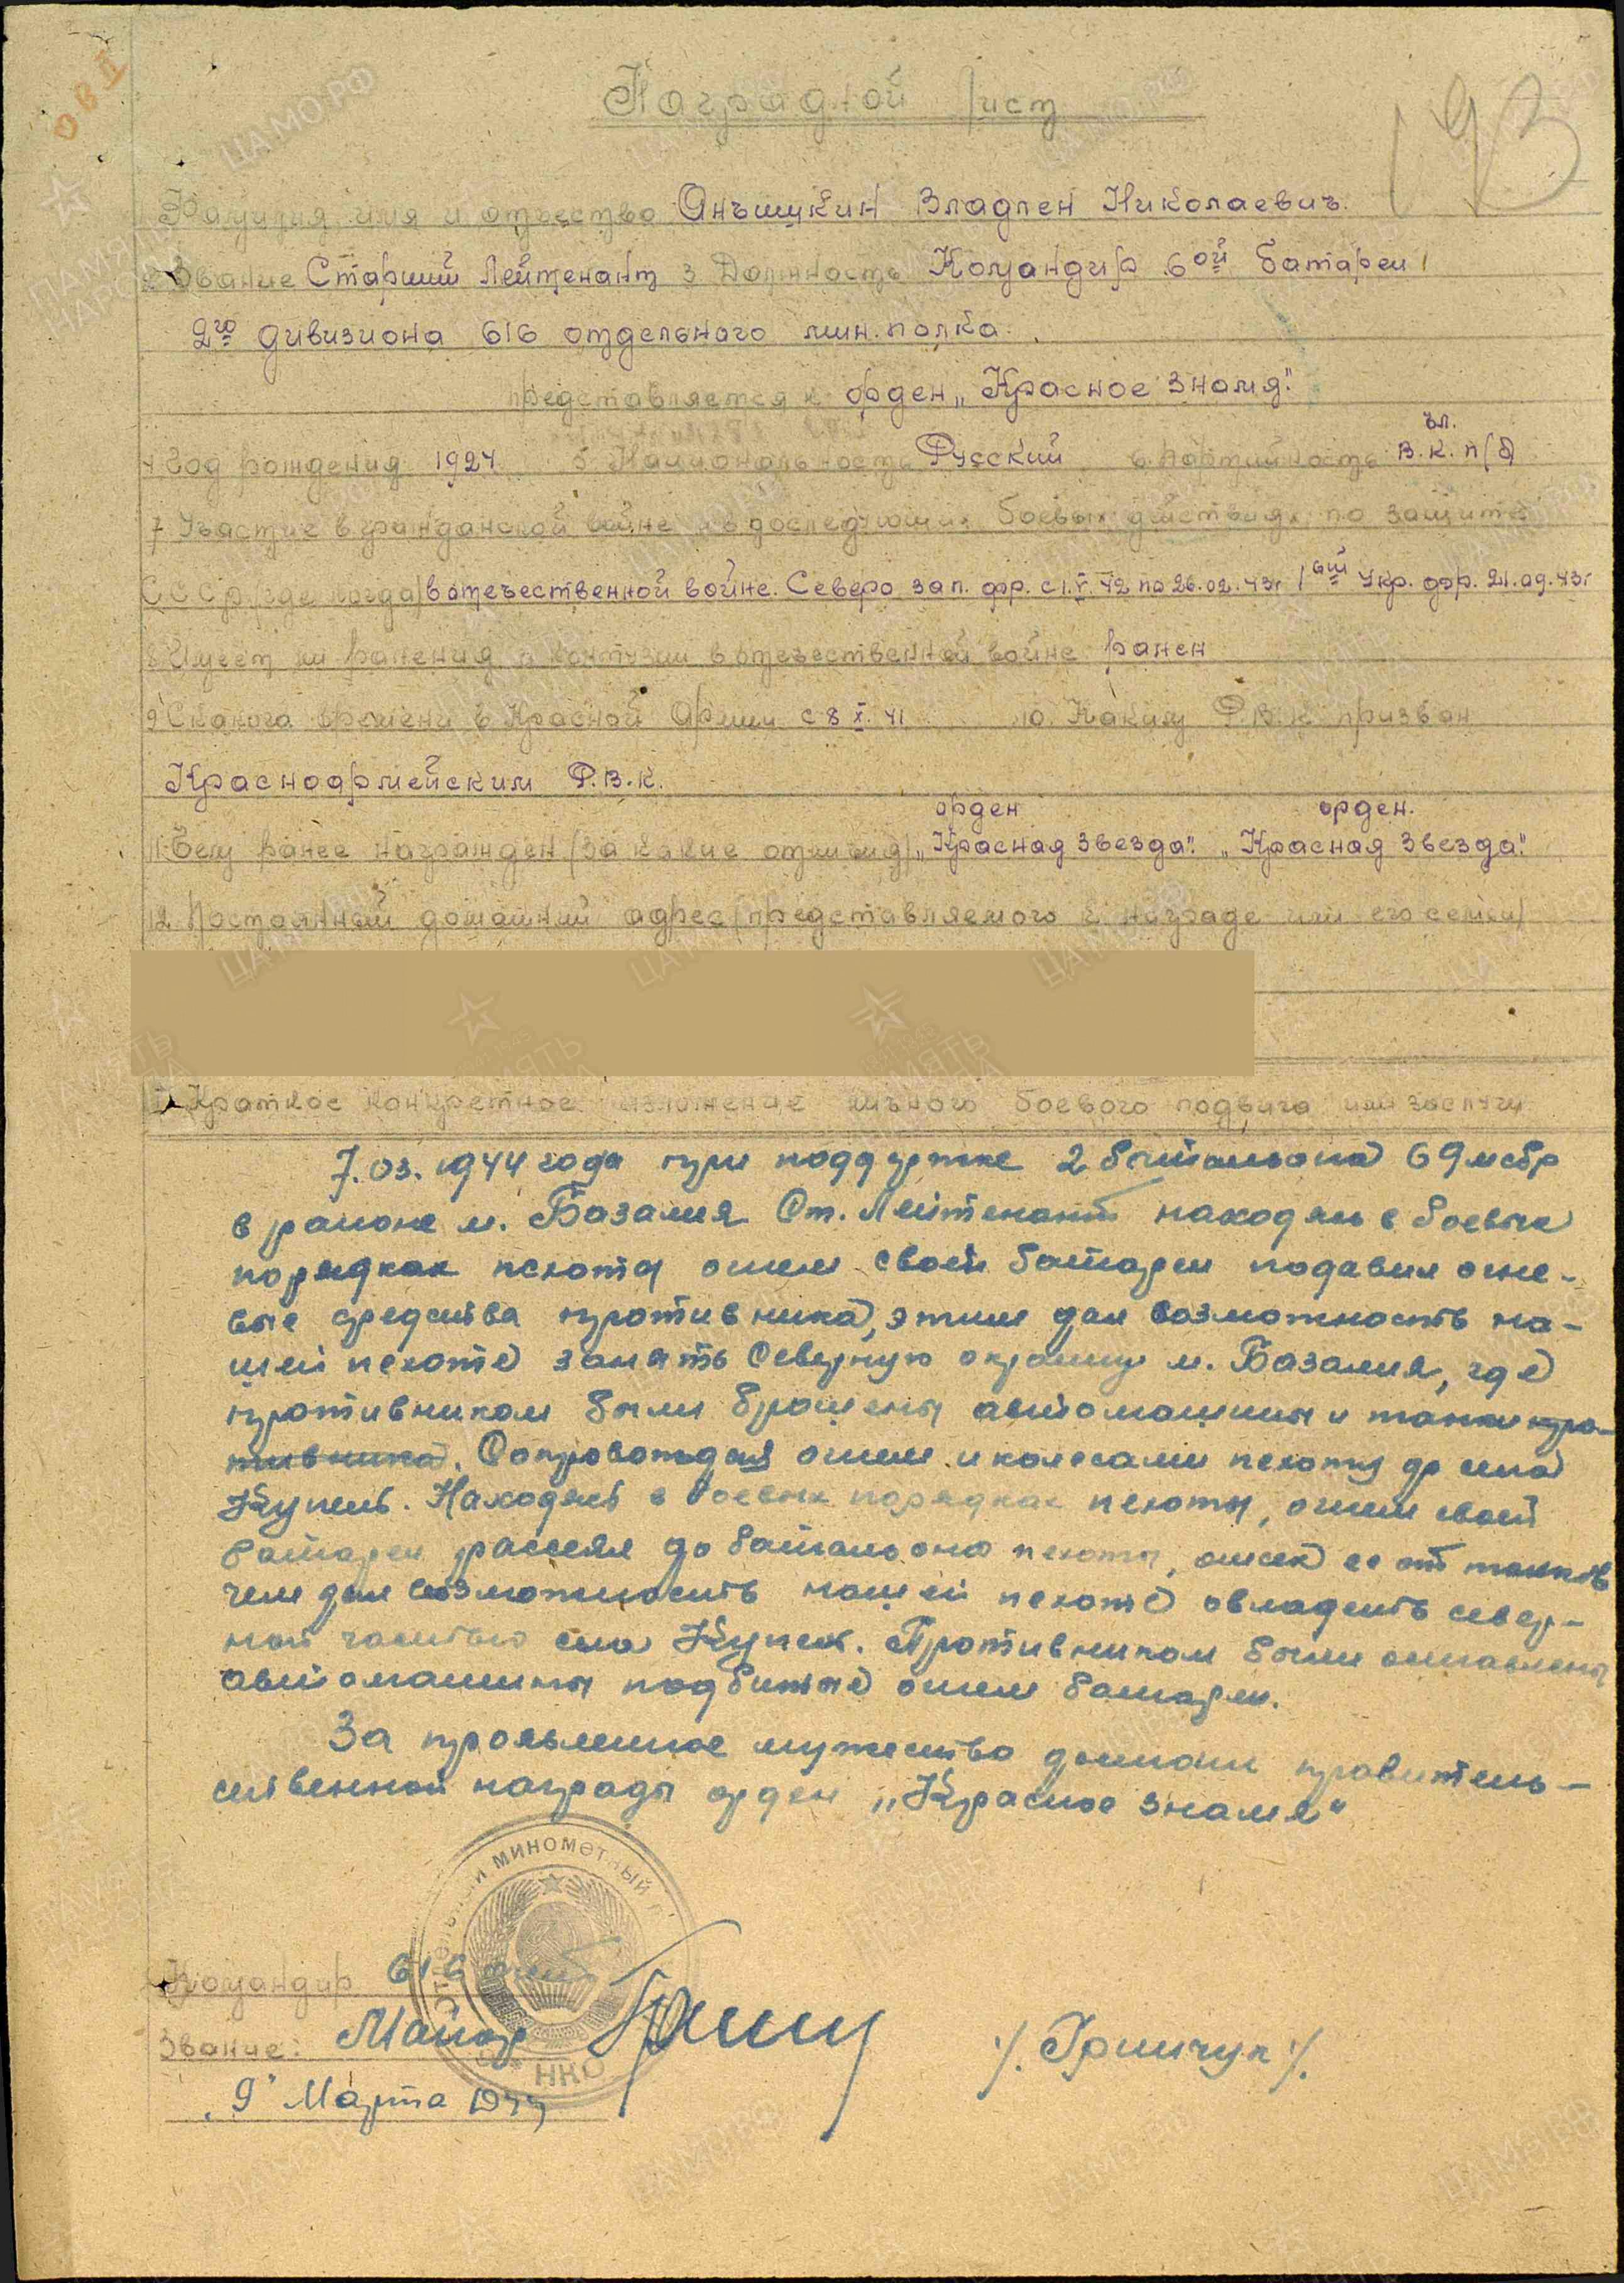 193
Наградной лист
Фамилия, имя и отчество Анъшукин Владлен Николаевич.
2 Звание Старший Лейтенант 3 Должность Командир 6ой батареи
2го дивизиона 616 отдельного мин. полка.
представляется к орден „Красное Знамя".
чл.
4 Год рождения 1924 5 Национальность Русский 6 Партийность В.К.П(б)
7 Участие в гражданской войне и в последующих боевых действиях по защите
СССР (где когда) в отечественной войне. Северо зап. фр. с 1.V.42 по 26.02.43г 1ый Укр. фр. 21.09.43г
8 Имеет ли ранения и контузии в отечественной войне ранен
9 С какого времени в Красной Армии с 8 X. 41 10. Каким Р.В.К. призван
Красноармейским Р.В.К.
орден орден.
11 Чем ранее награжден (за какие отличия) „Красная Звезда". „Красная Звезда".
12 Постоянный домашний адрес (представляемого к награде или его семьи)
Краткое конкретное изложение личного боевого подвига или заслуги
7.03.1944 года при поддержке 2 батальона 69 мсбр
в районе м. Базалия Ст. Лейтенант находясь в боевых
порядках пехоты огнем своей батареи подавил огне-
вые средства противника, этим дал возможность на-
шей пехоте занять Северную окраину м. Базалия, где
противником были брошены автомашины и танки про-
тивника. Сопровождая огнем и колесами пехоту до села
Купель. Находясь в боевых порядках пехоты, огнем своей
батареи рассеял до батальона пехоты, отсек ее от танков
чем дал возможность нашей пехоте овладеть север-
ной частью села Купель. Противником были оставлены
автомашины подбитые огнем батареи.
За проявленное мужество достоин правитель-
ственной награды орден „Красное знамя"
отдельный минометный
НКО
Командир 616 омп
Звание: Майор /. Гринчук /.
„9" Марта 1944